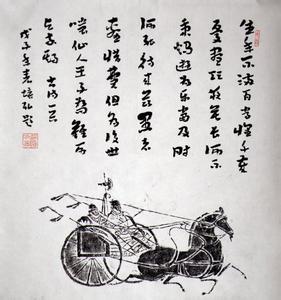 生年不满百常懷千歲
憂晝短苦夜長何不
秉燭遊为乐當及时
何能待来兹愚者
爱惜费但为後世
嗤仙人王子喬難可
与等期 古诗一首
戊子年